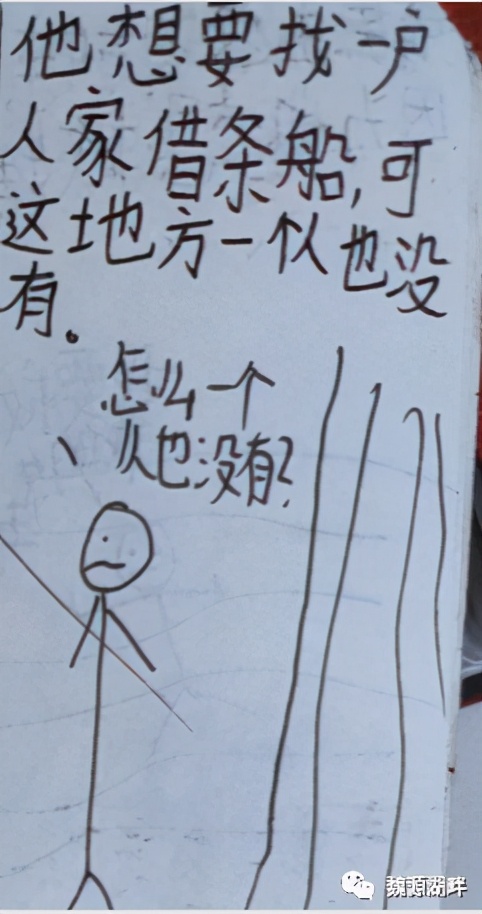 他想要找一户
人家借条船,可
这地方一个人也没
有。
怎么一个
人也没有?
魏源湖畔